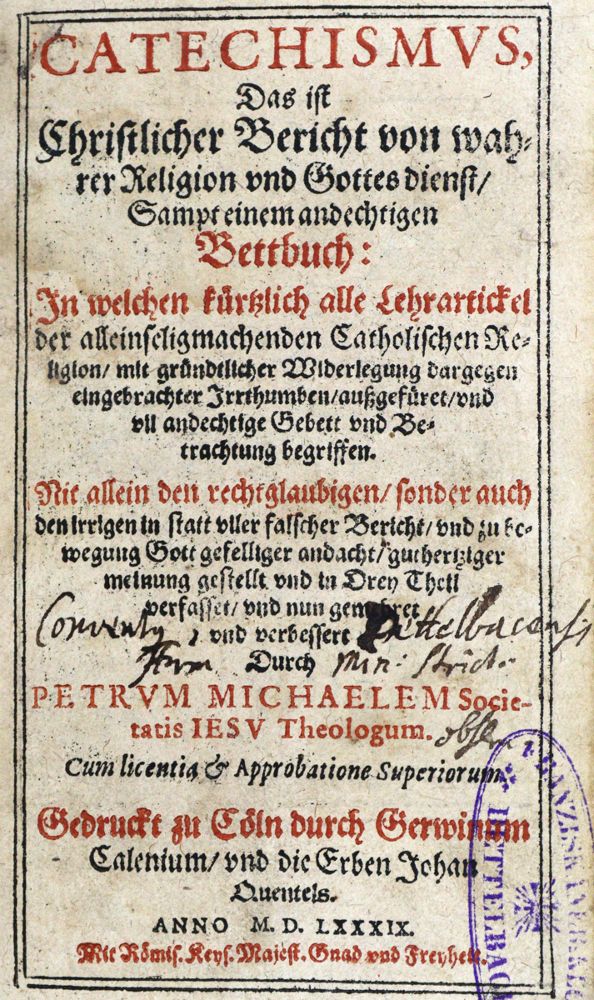 CATECHISMVS,
Das ist
Christlicher Bericht von wah-
rer Religion vnd Gottes dienst/
Sampt einem andechtigen
Bettbuch:
In welchen kürtzlich alle Lehrartickel
der alleinseligmachenden Catholischen Re-
ligion/ mit gründtlicher Widerlegung dargegen
eingebrachter Irrthumben/ außgefüret/ vnd
vil andechtige Gebett vnd Be-
trachtung begriffen.
Nit allein den rechtglaubigen/ sonder auch
den irrigen in statt viler falscher Bericht/ vnd zu be-
wegung Gott gefelliger andacht/ guthertziger
meinung gestellt vnd in Drey Theil
verfasset/ vnd nun gemehret
vnd verbessert
Dettelbacensis
Durch
Min: Strict.
PETRVM MICHAELEM Socie-
tatis IESV Theologum.
obser
Cum licentia & Approbatione Superiorum.
Gedruckt zu Cöln durch Gerwinum
Calenium/ vnd die Erben Johan
Quentels.
ANNO M. D. LXXXIX.
Mit Römis. Keys. Majest. Gnad vnd Freyheit.